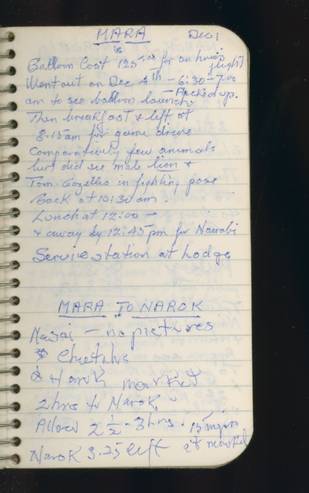 MARA
Balloon Cost 125.00 for an hour's flight
Went out on Dec 4th - 6:30-7:00
- Packed up.
am to see balloon launch.
Then breakfast & left at
8:15am for game drive
Comparatively few animals
but did see male lion &
Tom. Gazelles in fighting pose
Back at 10:30am.
Lunch at 12:00 -
& away by 12:45pm for Nairobi
Service station at Lodge
MARA TO NAROK
Masai - no pictures
Cheetahs
& Narok market
2 hrs to Narok
Allow 2 1/2 - 3 hrs. 15 min
at market
Narok 3.25 left